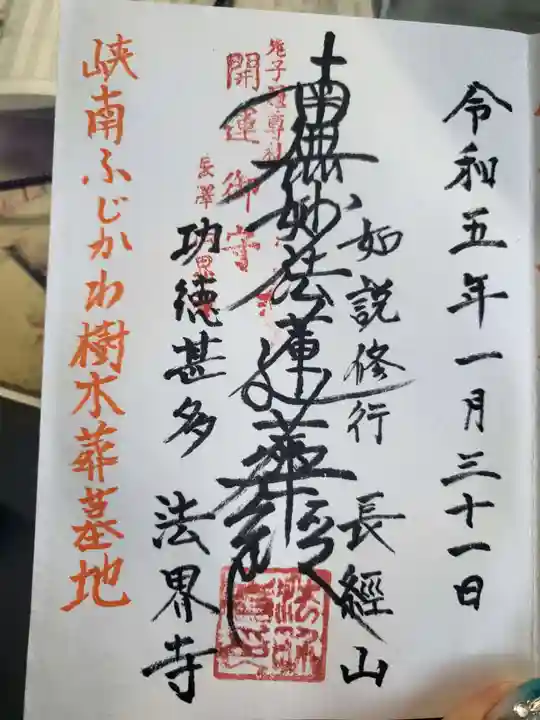 令和五年一月三十一日
如説修行 長經山
南無妙法蓮華経
開運御守
功徳甚多 法界寺
峡南ふじかわ樹木葬墓地